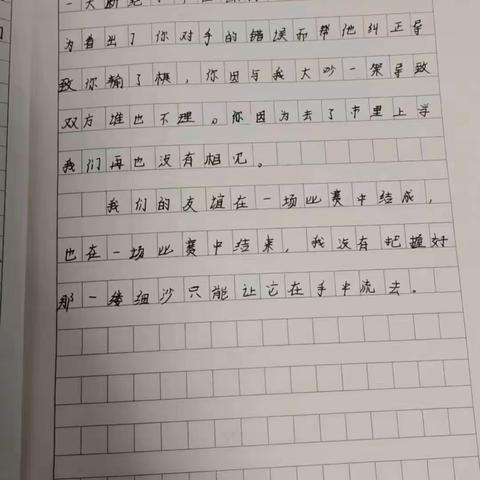 为看出了你对手的错误而帮他纠正导
致你输了棋，你因与我大吵一架导致
双方谁也不理。你因为去了市里上学
我们再也没有相见。
我们的友谊在一场比赛中结成，
也在一场比赛中结束，我没有把握好
那一缕细沙只能让它在手中流去。